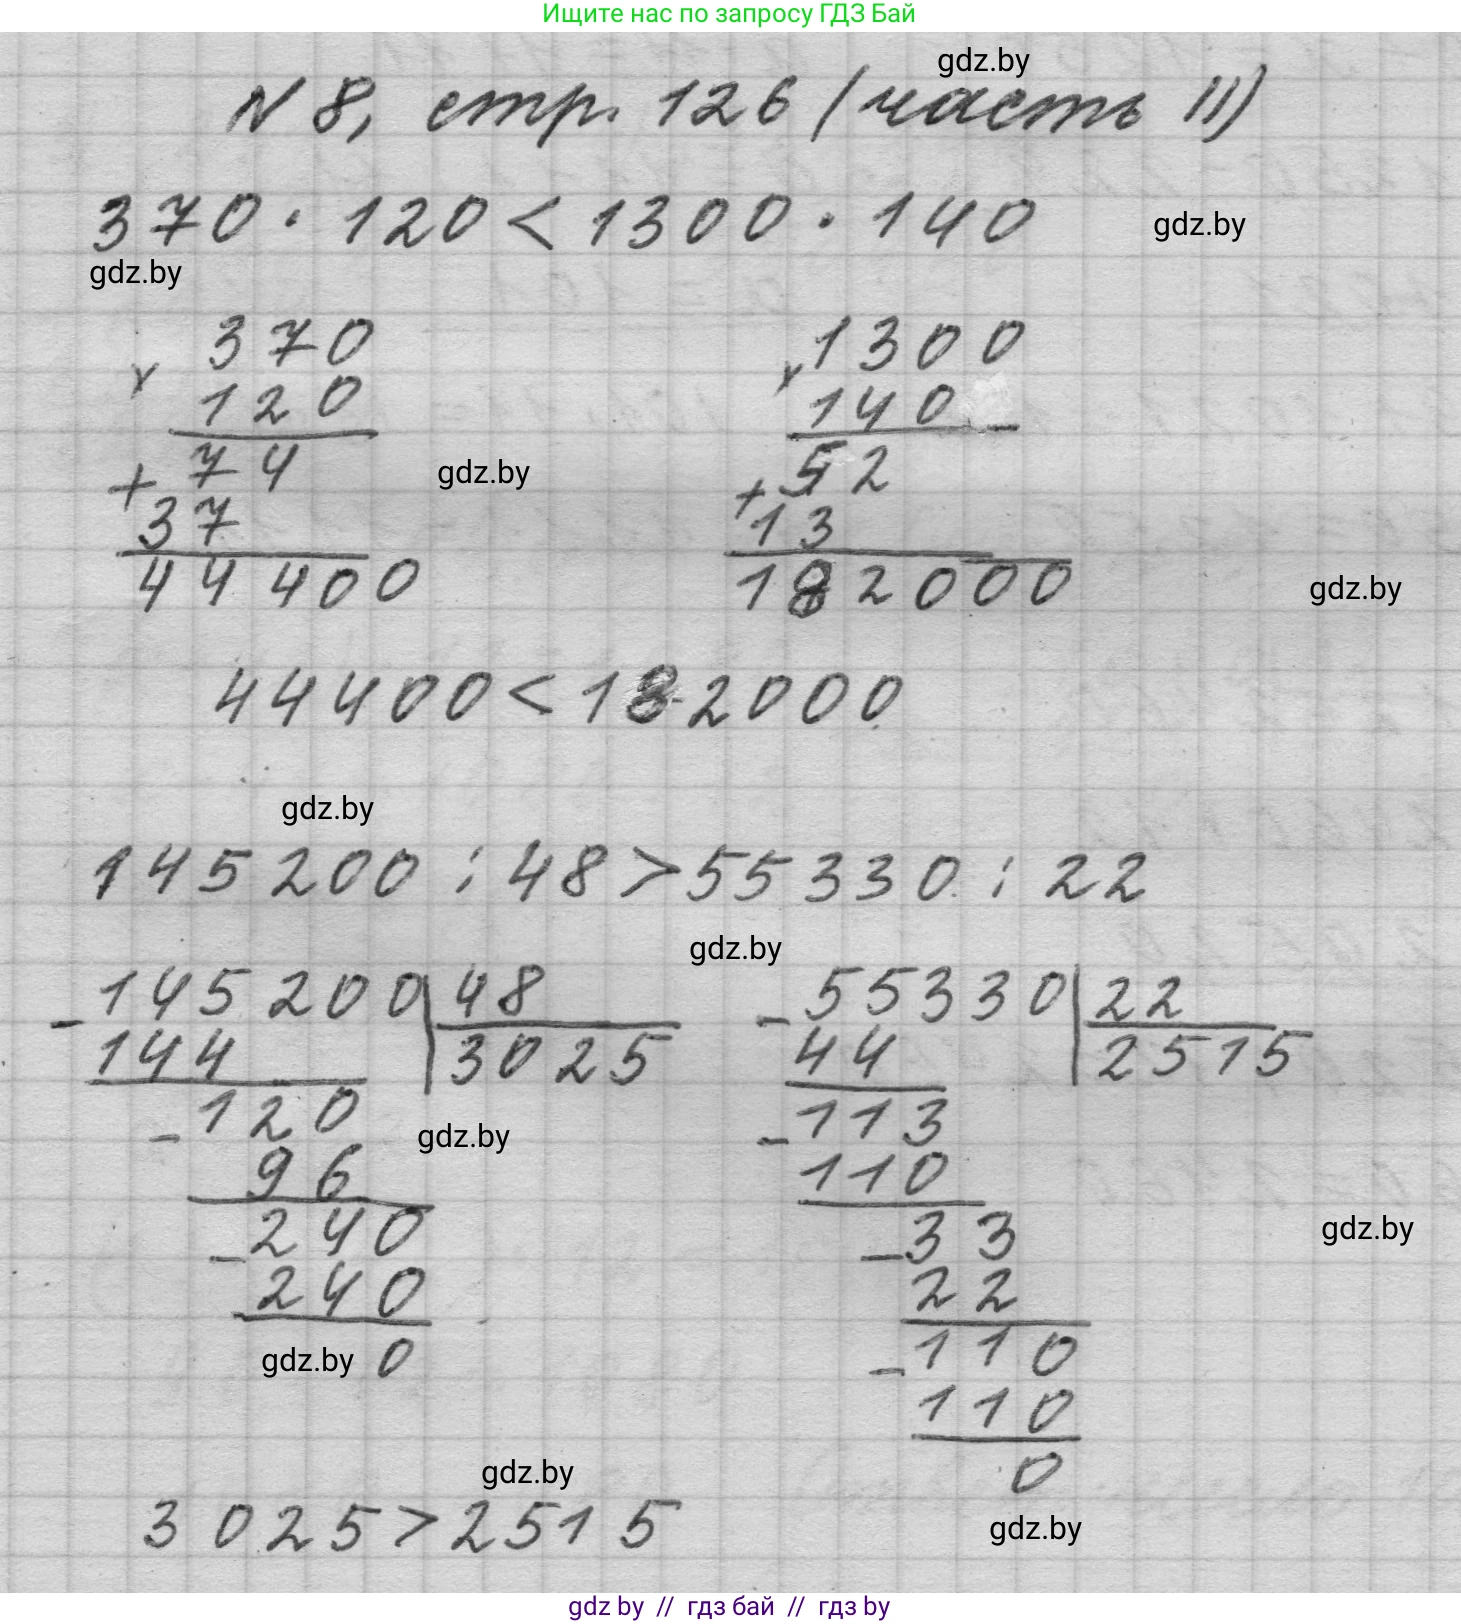 Ищите нас по запросу ГДЗ Бай
gdz.by
N 8, стр. 126 (часть II)
370 · 120 < 1300 · 140
gdz.by
gdz.by
370
x
120
74
+
37
44400
1300
x
140
52
+
13
182000
gdz.by
gdz.by
44400 < 182000
gdz.by
145200 : 48 > 55330 : 22
gdz.by
145200 | 48
-
144 3025
-120
96
-240
240
0
gdz.by
gdz.by
55330 | 22
-
44 2515
-113
110
-33
22
-110
110
0
gdz.by
gdz.by
3025 > 2515
gdz.by
gdz by // гдз бай // гдз by